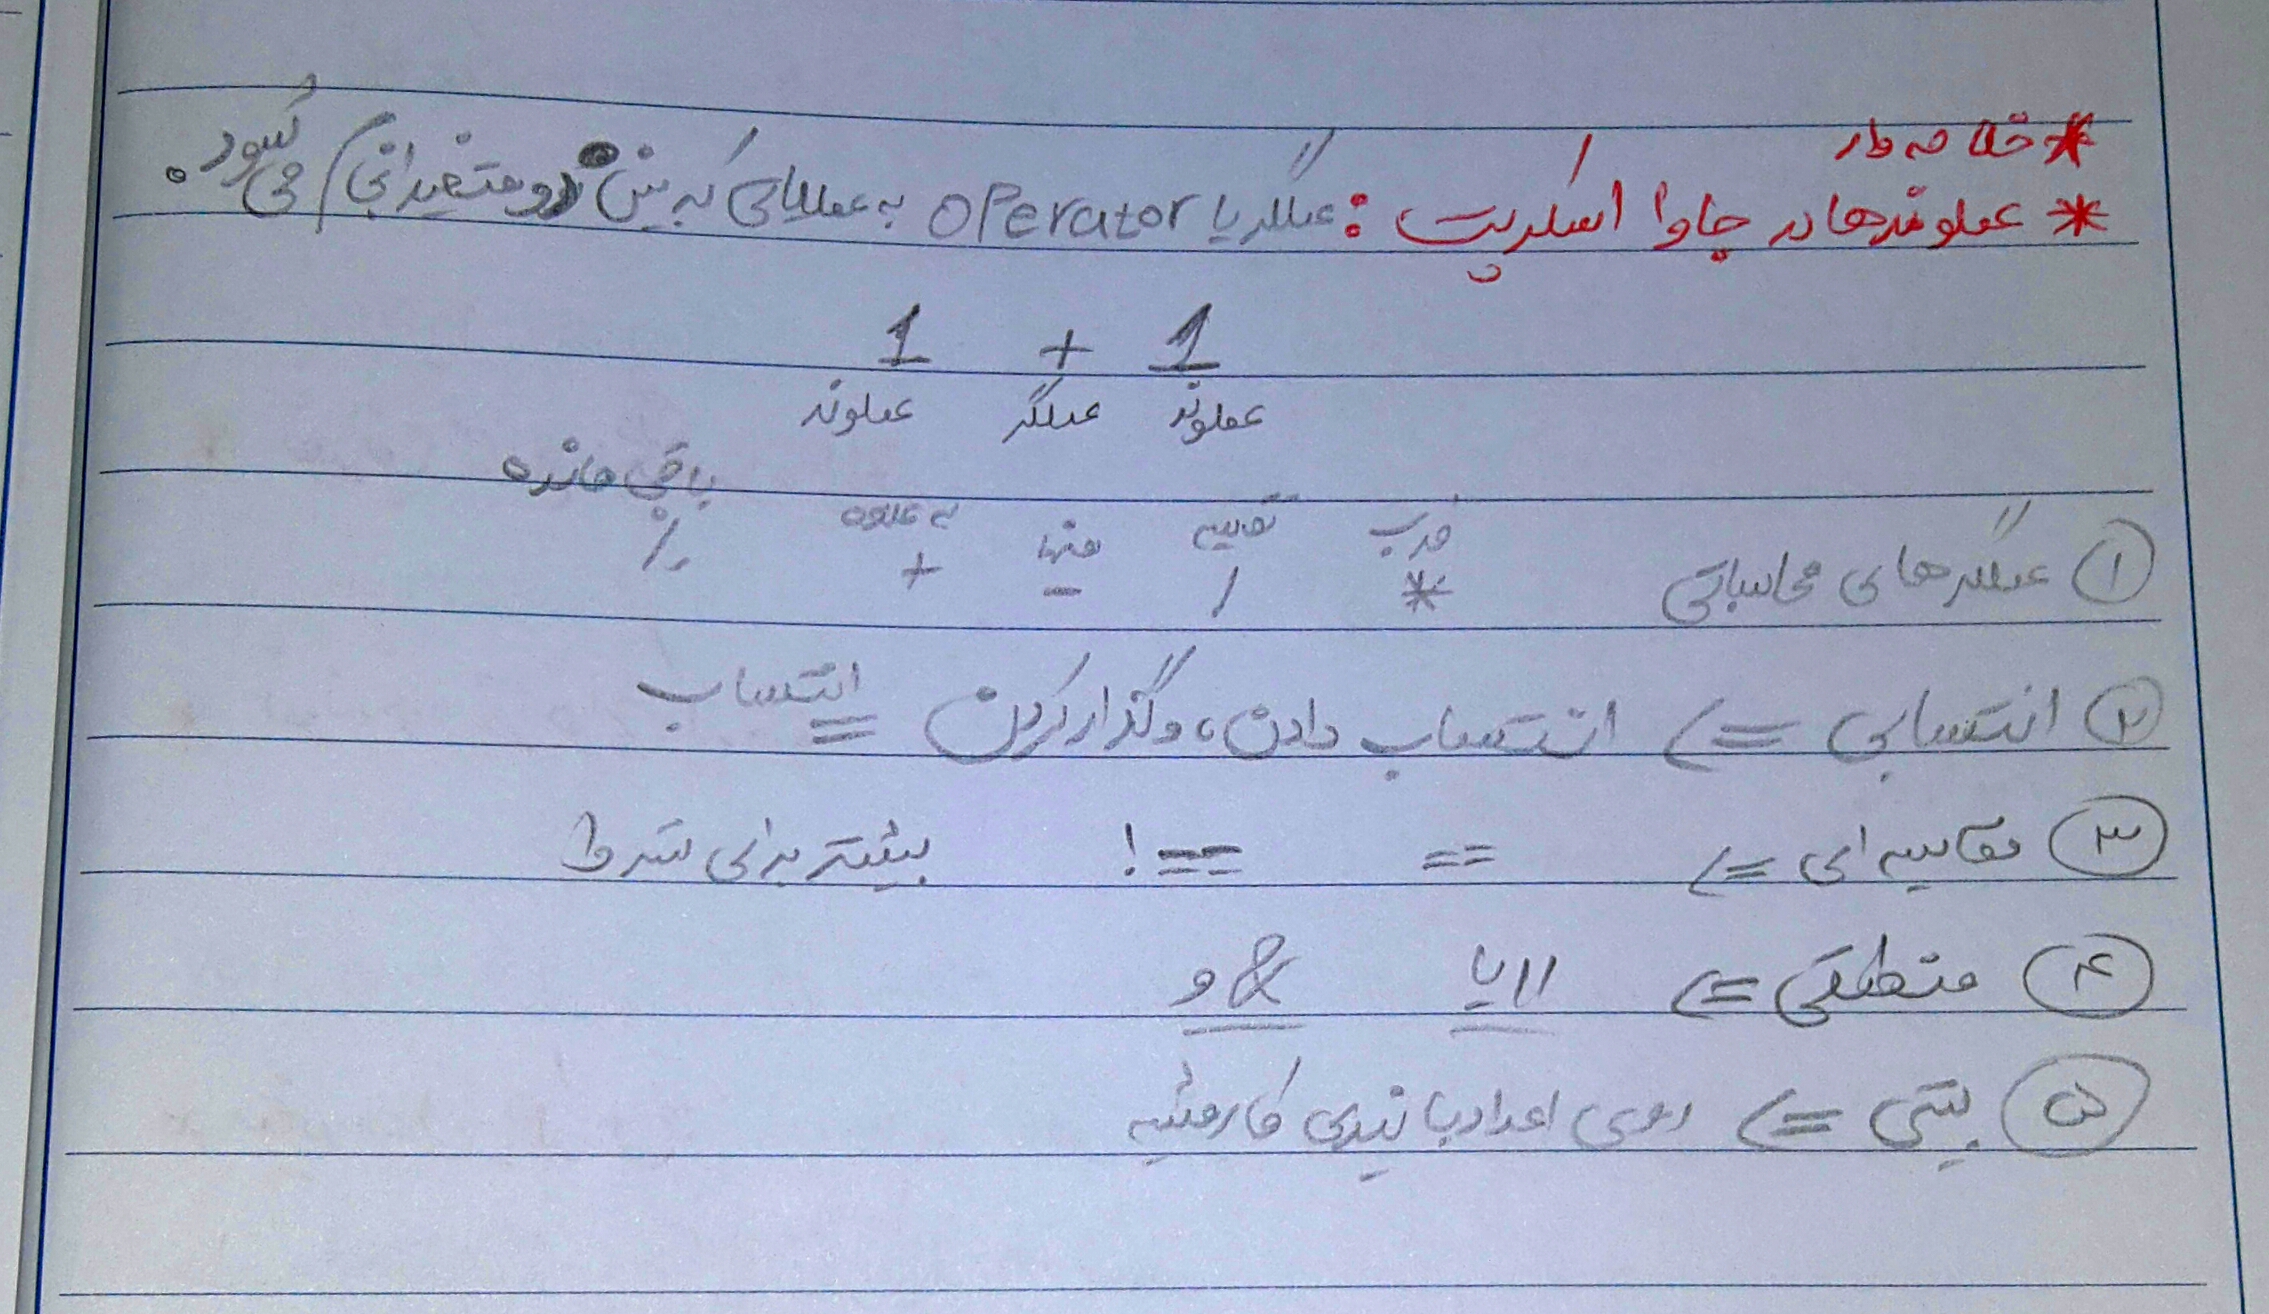 *
* عملوندها در جاوا اسکریپت : عملگر یا operator به عملیاتی که بین دو متغیر انجام می شود.
1 + 1
عملوند عملگر عملوند
باقی مانده
ضرب تقسیم منها به علاوه
① عملگرهای محاسباتی * / - + %
② انتسابی => انتساب دادن، وگذار کردن = انتساب
③ مقایسه ای => == !== بیشتر برای شرط
④ منطقی => || یا & و
⑤ بیتی => روی اعداد باینری کار میشه